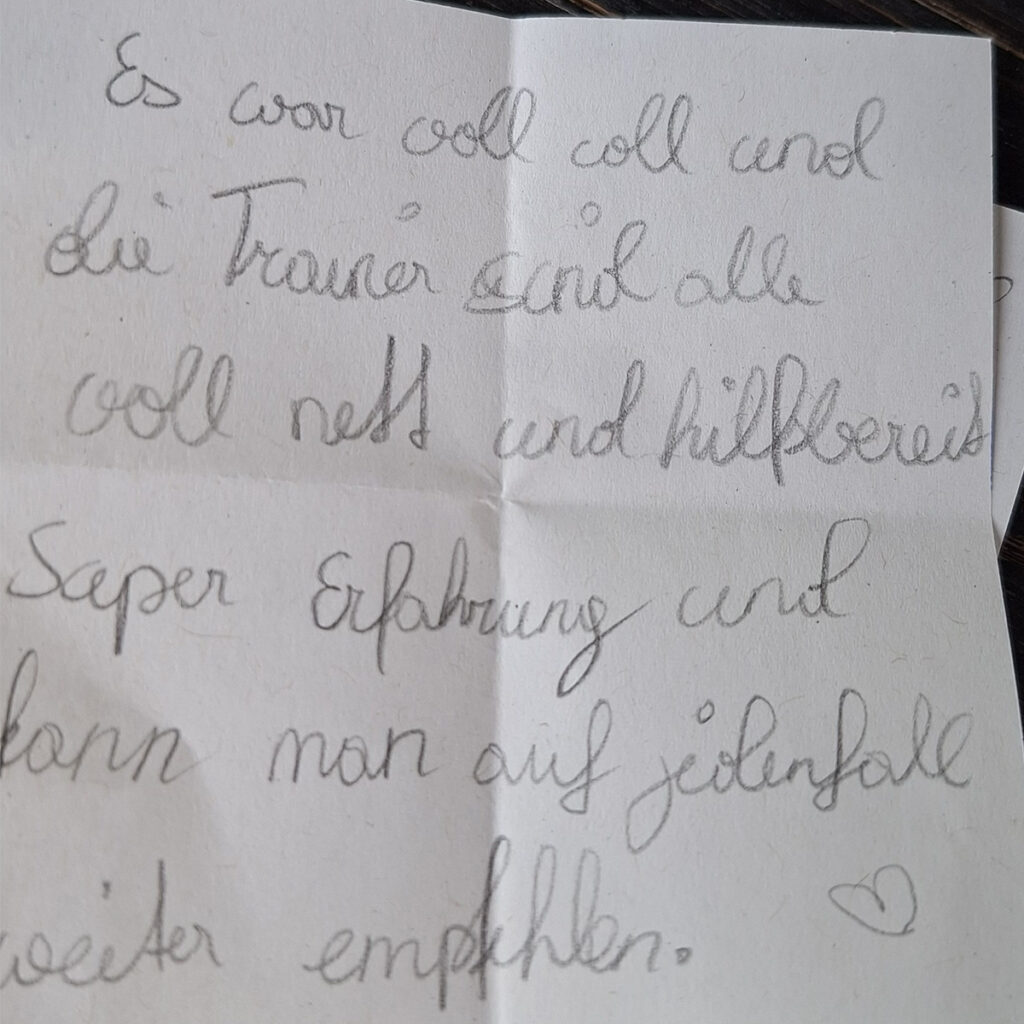 Es war voll coll und
die Trainer sind alle
voll nett und hilfsbereit
Super Erfahrung und
kann man auf jedenfall
weiter empfehlen.